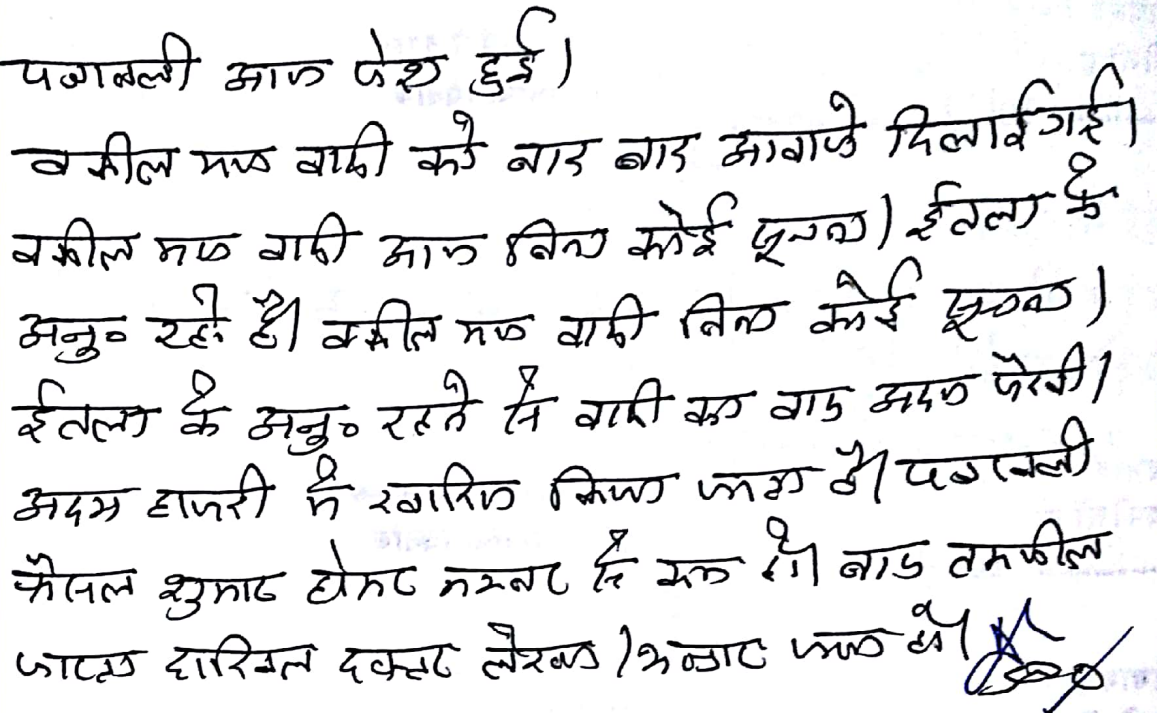 पत्रावली आज पेश हुई।
वकील मय वादी को बार बार आवाजे दिलाई गई।
वकील मय वादी आज बिना कोई सूचना / ईतला के
अनु० रहे है। वकील मय वादी बिना कोई सूचना /
ईतला के अनु० रहने से वादी का वाद अदम पैरवी /
अदम हाजरी मे खारिज किया जाता है। पत्रावली
फैसल शुमार होकर नम्बर से कम हो। बाद तकमील
जाप्ता दाखिल दफ्तर लेखा / जावे।